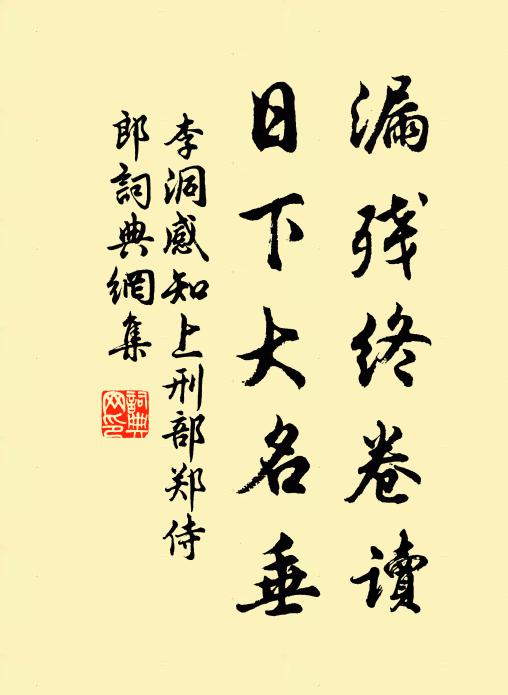 漏残终卷读
日下大名垂
李洞感知上刑部郑侍
郎詞典網集
詞典
网印